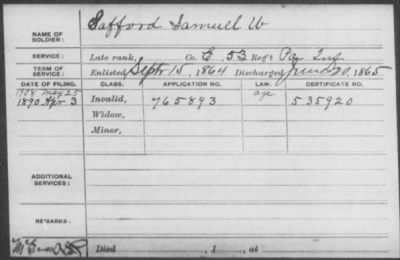 NAME OF SOLDIER: Safford Samuel W
SERVICE: Late rank, Co. E, 53 Reg't Pa Inf.
TERM OF SERVICE: Enlisted Sept 15, 1864 Discharged June 20, 1865
DATE OF FILING. CLASS. APPLICATION NO. LAW. CERTIFICATE NO.
1908 May 25 age
1890 Apr 3 Invalid, 765893 535920
Widow,
Minor,
ADDITIONAL SERVICES:
REMARKS:
Died , 1 , at